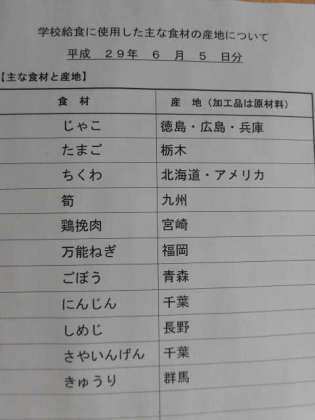 学校給食に使用した主な食材の産地について
平成 29年 6 月 5 日分
【主な食材と産地】
食 材 産 地（加工品は原材料）
じゃこ 徳島・広島・兵庫
たまご 栃木
ちくわ 北海道・アメリカ
筍 九州
鶏挽肉 宮崎
万能ねぎ 福岡
ごぼう 青森
にんじん 千葉
しめじ 長野
さやいんげん 千葉
きゅうり 群馬